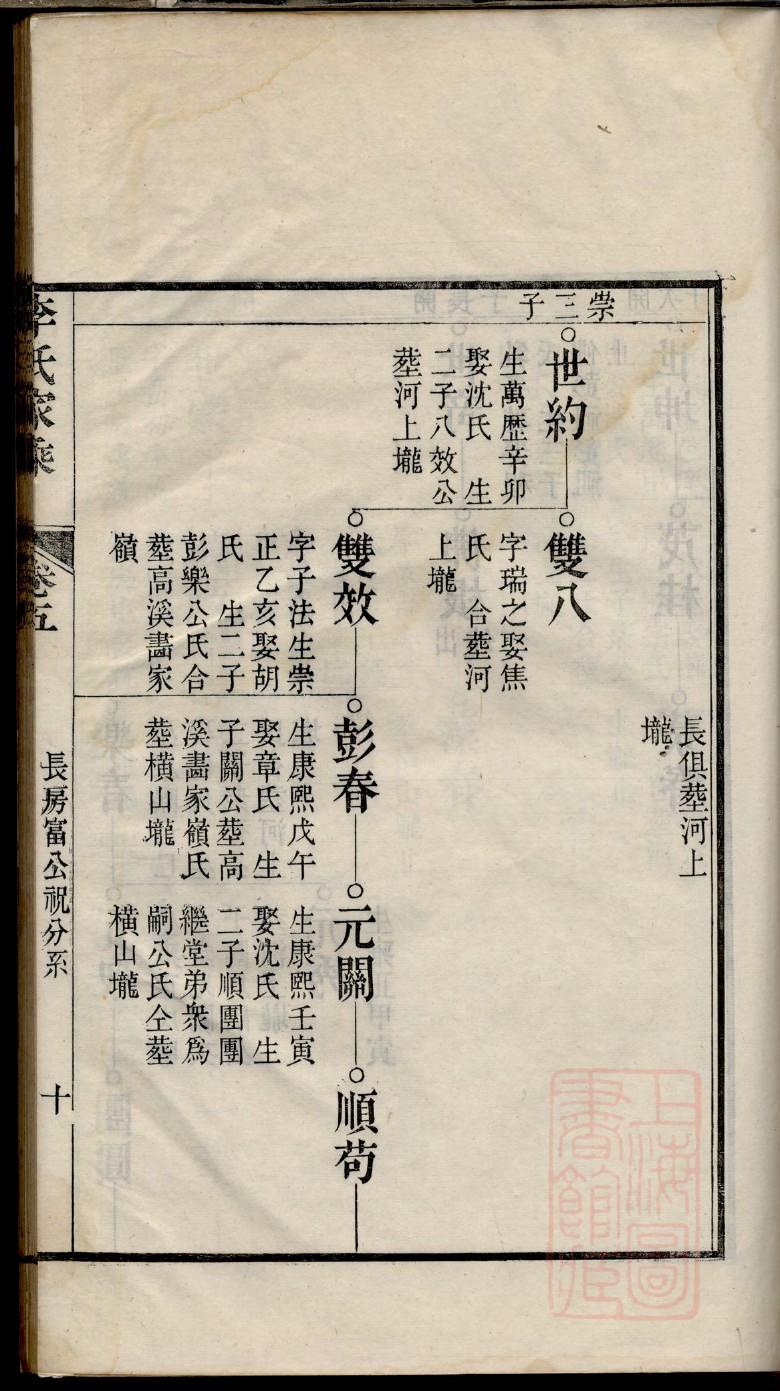 長俱塟河上
壠
崇三子
世約
生萬歷辛卯
娶沈氏 生
二子八效公
塟河上壠
雙八
字瑞之娶焦
氏 合塟河
上壠
雙效
字子法生崇
正乙亥娶胡
氏 生二子
彭樂公氏合
塟高溪畵家
嶺
彭春
生康熙戊午
娶章氏 生
子關公塟高
溪畵家嶺氏
塟橫山壠
元關
生康熙壬寅
娶沈氏 生
二子順團團
繼堂弟衆爲
嗣公氏仝塟
橫山壠
順苟
李氏家乘
卷五
長房富公祝分系
十
上海圖
書館藏